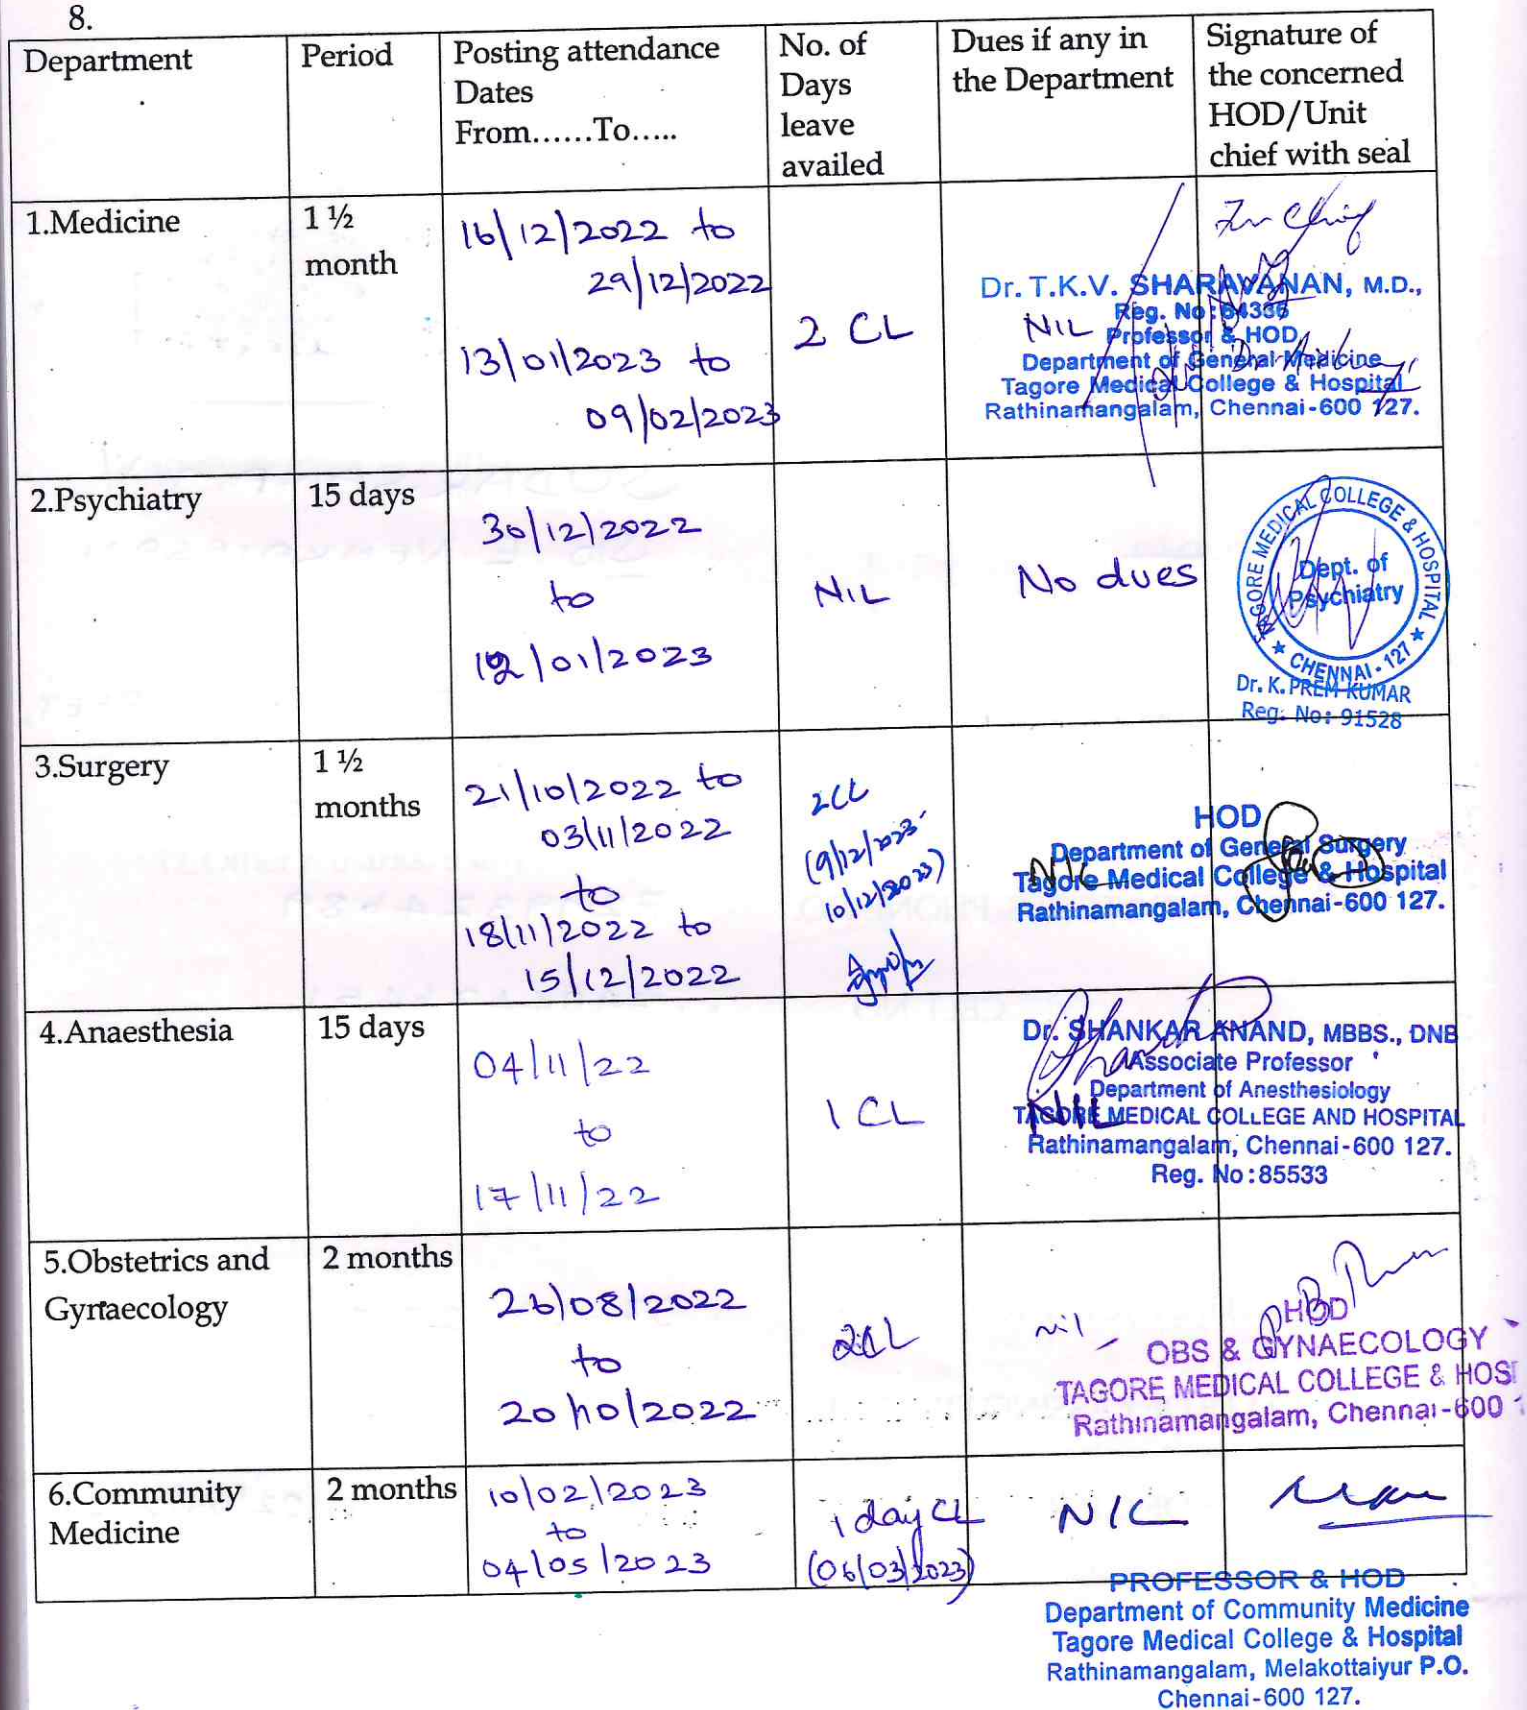 8.
Department
Period
Posting attendance
Dates
From......To.....
No. of
Days
leave
availed
Dues if any in
the Department
Signature of
the concerned
HOD/Unit
chief with seal
1.Medicine
1 ½
month
16/12/2022 to
29/12/2022
13/01/2023 to
09/02/2023
2 CL
NIL
Dr. T.K.V. SHARAVANAN, M.D.,
Reg. No:64336
Professor & HOD,
Department of General Medicine
Tagore Medical College & Hospital
Rathinamangalam, Chennai-600 127.
2.Psychiatry
15 days
30/12/2022
to
12/01/2023
NIL
No dues
TAGORE MEDICAL COLLEGE & HOSPITAL
★ CHENNAI - 127 ★
Dept. of
Psychiatry
Dr. K. PREM KUMAR
Reg. No: 91528
3.Surgery
1 ½
months
21/10/2022 to
03/11/2022
to
18/11/2022 to
15/12/2022
2CL
(9/12/2023-
10/12/2023)
NIL
HOD
Department of General Surgery
Tagore Medical College & Hospital
Rathinamangalam, Chennai-600 127.
4.Anaesthesia
15 days
04/11/22
to
17/11/22
1 CL
NIL
Dr. SHANKAR ANAND, MBBS., DNB
Associate Professor
Department of Anesthesiology
TAGORE MEDICAL COLLEGE AND HOSPITAL
Rathinamangalam, Chennai-600 127.
Reg. No:85533
5.Obstetrics and
Gynaecology
2 months
26/08/2022
to
20/10/2022
2CL
nil
HOD
OBS & GYNAECOLOGY
TAGORE MEDICAL COLLEGE & HOSI
Rathinamangalam, Chennai-600
6.Community
Medicine
2 months
10/02/2023
to
04/05/2023
1 day CL
(06/03/2023)
NIL
PROFESSOR & HOD
Department of Community Medicine
Tagore Medical College & Hospital
Rathinamangalam, Melakottaiyur P.O.
Chennai-600 127.